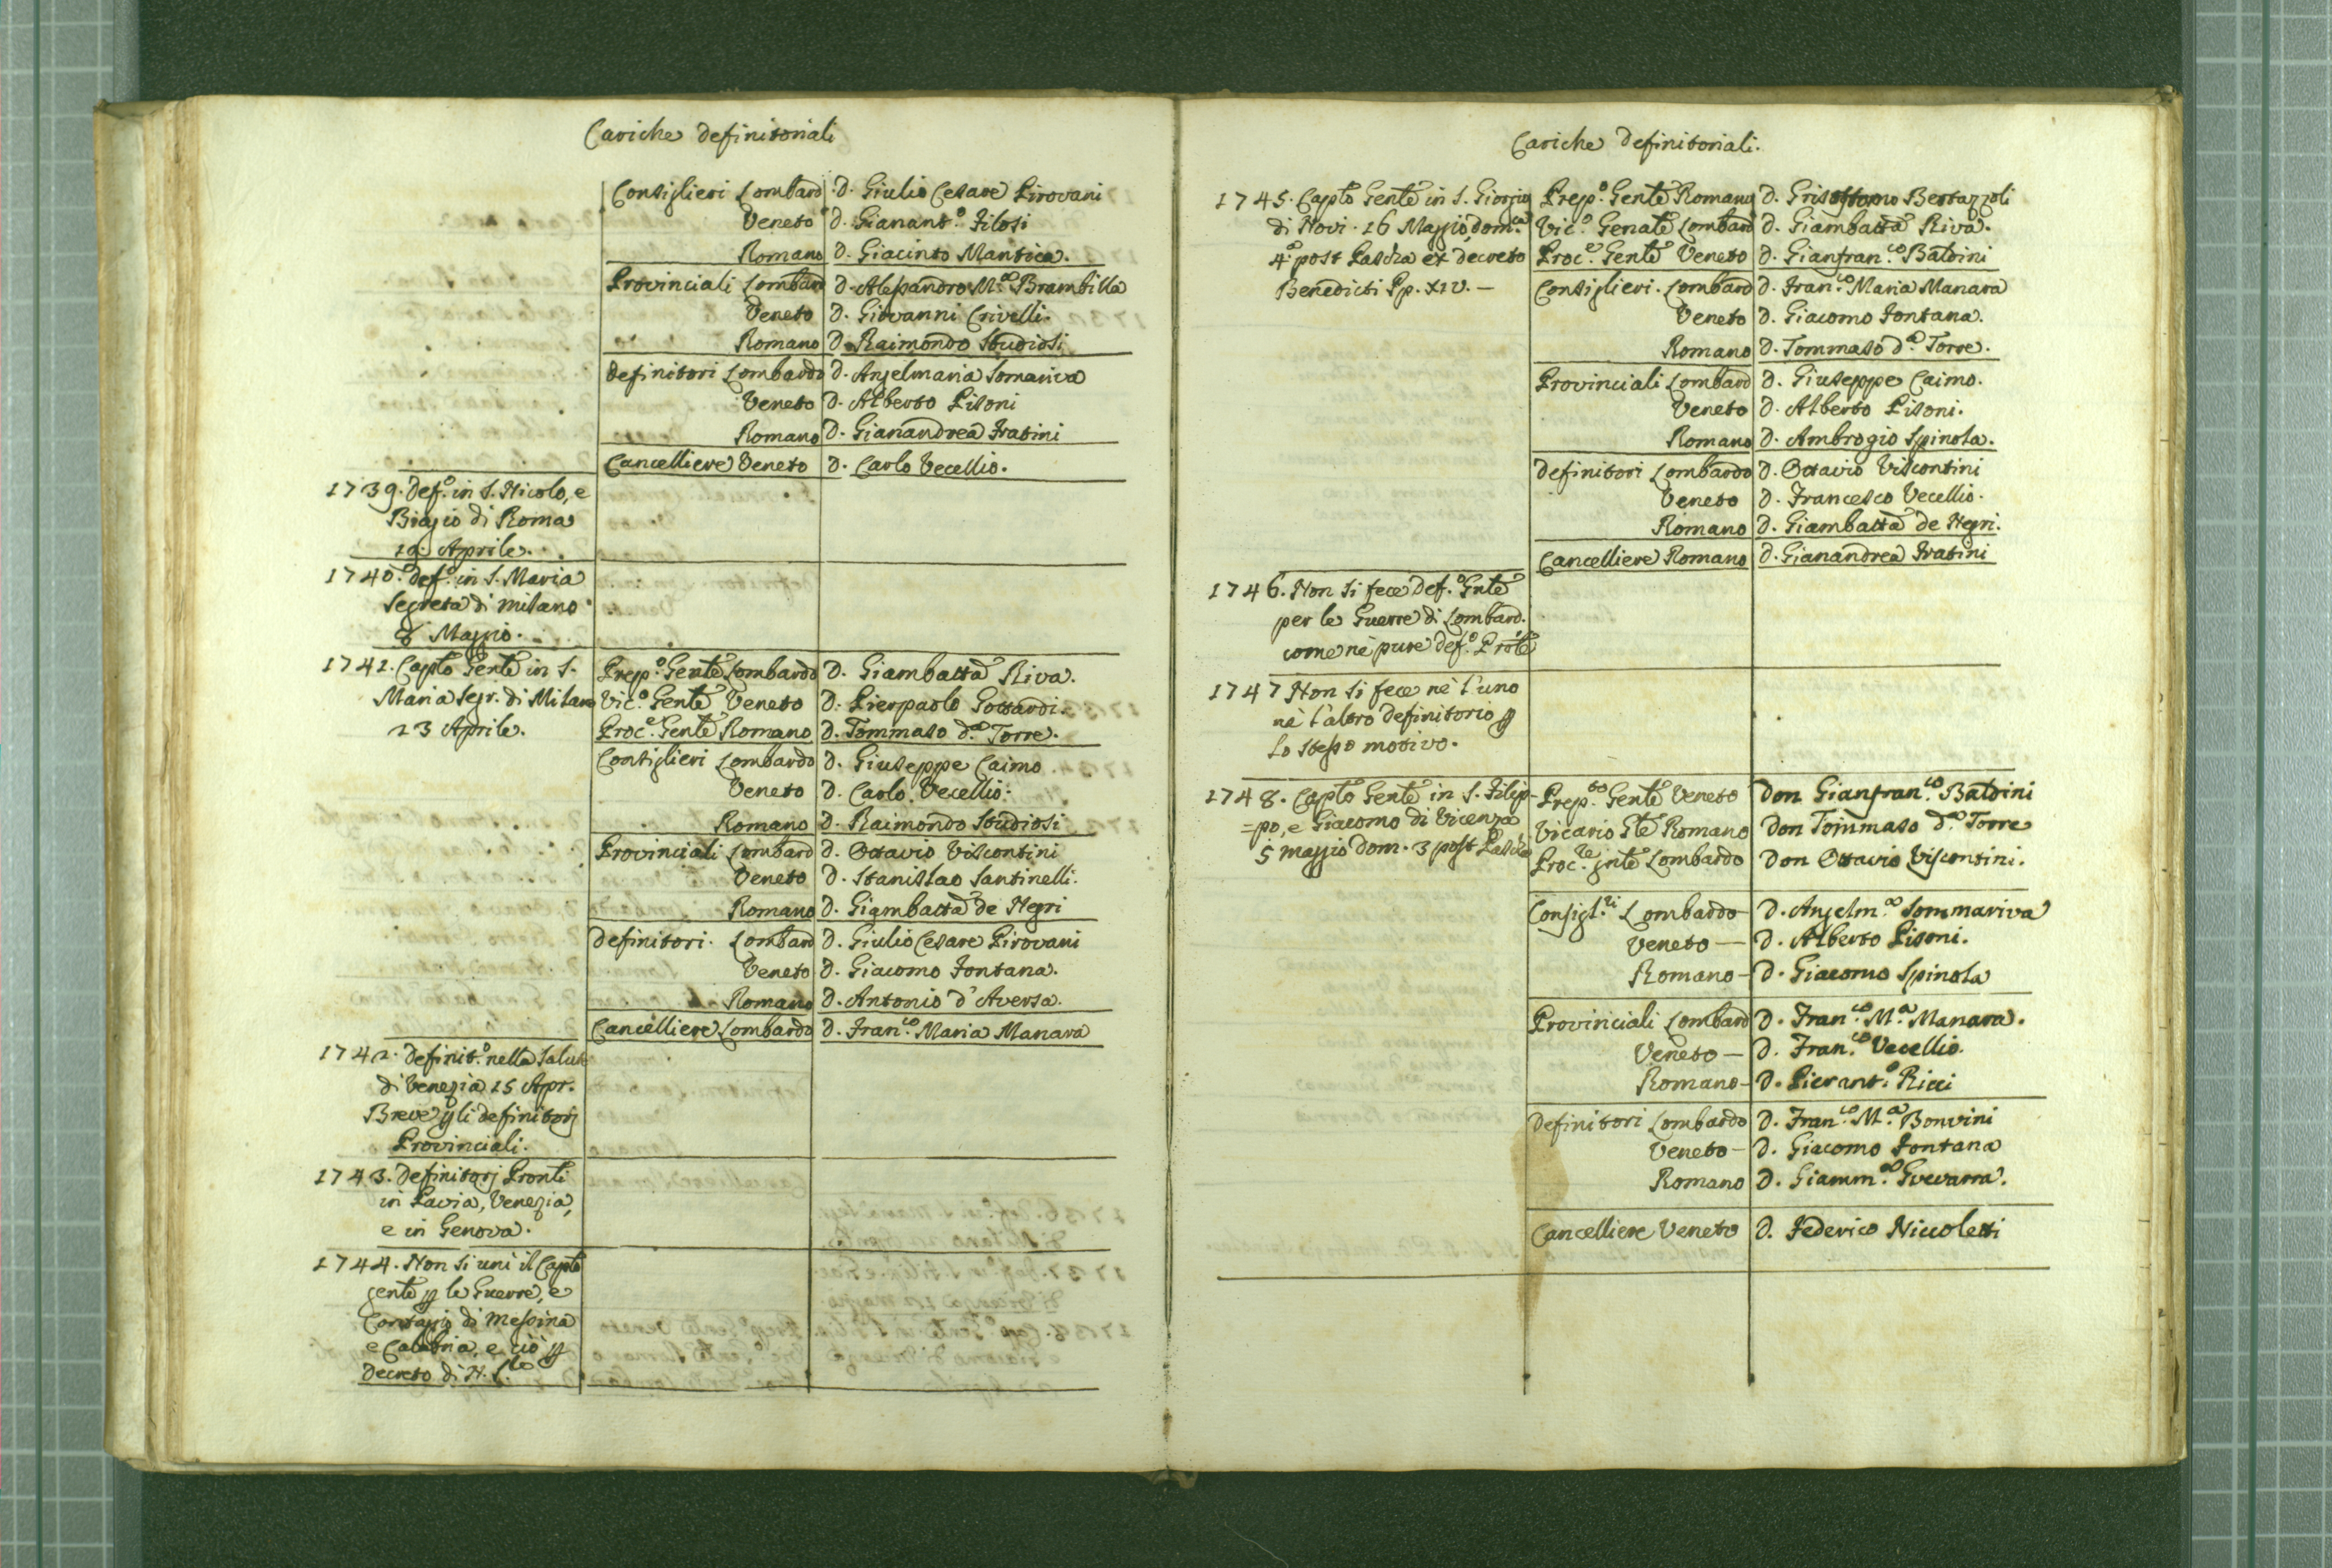 Cariche definitoriali
Consiglieri Lombard. D. Giulio Cesare Pirovani
Veneto D. Gianant.º Filosi
Romano D. Giacinto Mantica.
Provinciali Lombard D. Alessandro M.ª Brambilla
Veneto D. Giovanni Crivelli.
Romano D. Raimondo Studiosi
Definitori Lombardo D. Angelmaria Somariva
Veneto D. Alberto Pisoni
Romano D. Gianandrea Fratini
Cancelliere Veneto D. Carlo Vecellio.
1739. Def.º in S. Nicolo, e
Biagio di Roma
19. Aprile.
1740. def.º in S. Maria
Segreta di Milano
8 Maggio.
1741. Capto Gente in S. Prep.º Gente Lombardo D. Giambatta Riva.
Maria Segr. di Milano Vic.º Gente Veneto D. Pierpaolo Gottardi.
23 Aprile. Proc.e Gente Romano D. Tommaso d.ª Torre.
Consiglieri Lombardo D. Giuseppe Caimo.
Veneto D. Carlo Vecellio.
Romano D. Raimondo Studiosi
Provinciali Lombard D. Ottavio Viscontini
Veneto D. Stanislao Santinelli.
Romano D. Giambatta de Negri
Definitori. Lombard D. Giulio Cesare Pirovani
Veneto D. Giacomo Fontana.
Romano D. Antonio d'Aversa.
Cancelliere Lombardo D. Fran.co Maria Manara
1742. Definit.º nella Salute
di Venezia 15 Apr.
Breve p li definitorj
Provinciali.
1743. Definitorj Pronti
in Pavia, Venezia,
e in Genova.
1744. Non si uni il Capto
gente p le Guerre, e
Contagio di Messina
e Calabria, e ciò p
decreto di N. S.re
Cariche Definitoriali.
1745. Capto Gente in S. Giorgio Prep.º Gente Romano D. Grisostomo Bertazzoli
di Novi. 16 Maggio, dom.ca Vic.º Genate Lombard D. Giambatta Riva.
4ª post Pascha ex decreto Proc.e Gente Veneto D. Gianfran.co Baldini
Benedicti Pp. XIV. — Consiglieri. Lombard D. Fran.co Maria Manara
Veneto D. Giacomo Fontana.
Romano D. Tommaso d.ª Torre.
Provinciali Lombard D. Giuseppe Caimo.
Veneto D. Alberto Pisoni.
Romano D. Ambrogio Spinola.
Definitori Lombardo D. Ottavio Viscontini
Veneto D. Francesco Vecellio.
Romano D. Giambatta de Negri.
Cancelliere Romano D. Gianandrea Fratini
1746. Non si fece Def.º Gnte
per le Guerre di Lombard.
come nè pure def.º Prote
1747 Non si fece nè l'uno
nè l'altro definitorio p
lo stesso motivo.
1748. Capto Gente in S. Filip- Prep.to Gente Veneto Don Gianfran.co Baldini
=po, e Giacomo di Vicenza Vicario Gte Romano Don Tommaso d.ª Torre
5 Maggio Dom. 3 post Pascha Proc.re gnte Lombardo Don Ottavio Viscontini.
Consigl.ri Lombardo D. Angelm.ª Sommariva
Veneto — D. Alberto Pisoni.
Romano - D. Giacomo Spinola
Provinciali Lombard D. Fran.co M.ª Manara.
Veneto — D. Fran.co Vecellio.
Romano - D. Pierant.º Ricci
Definitori Lombardo D. Fran.co M.ª Bonvini
Veneto - D. Giacomo Fontana
Romano D. Giamm.ª Guevarra.
Cancelliere Veneto D. Federico Niccoletti